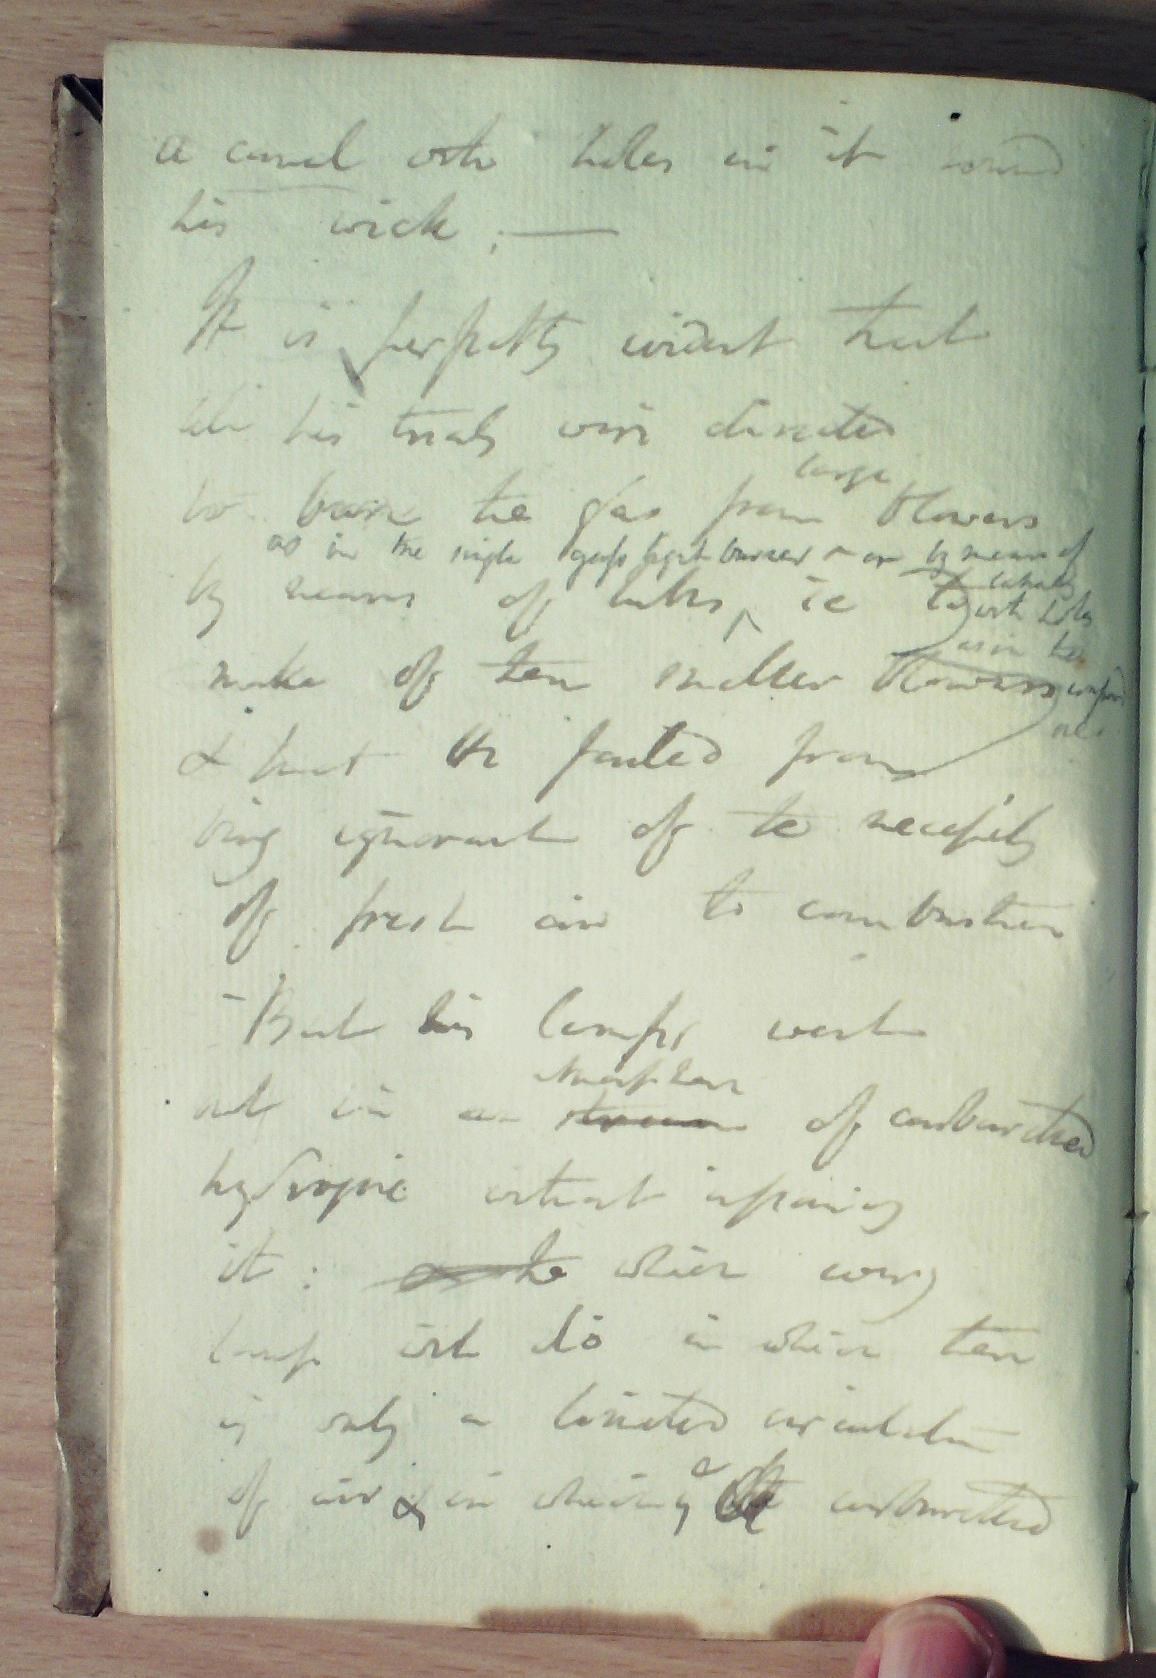 a canal with holes in it round
his wick; —
It is perfectly evident that
all his trials were directed
to burn the gas from large blowers
as in the single gass light burner or by means of
by means of tubes, ie to
with holes
as in the
make of them smaller blowers
& that he failed from
being ignorant of the necessity
of fresh air to combustion
- But his lamps went
out in an atmosphere
stream of carburetted
hydrogene without inflaming
it: the which every
lamp will do in which there
is only a limited circulation
of air & in which a carburetted